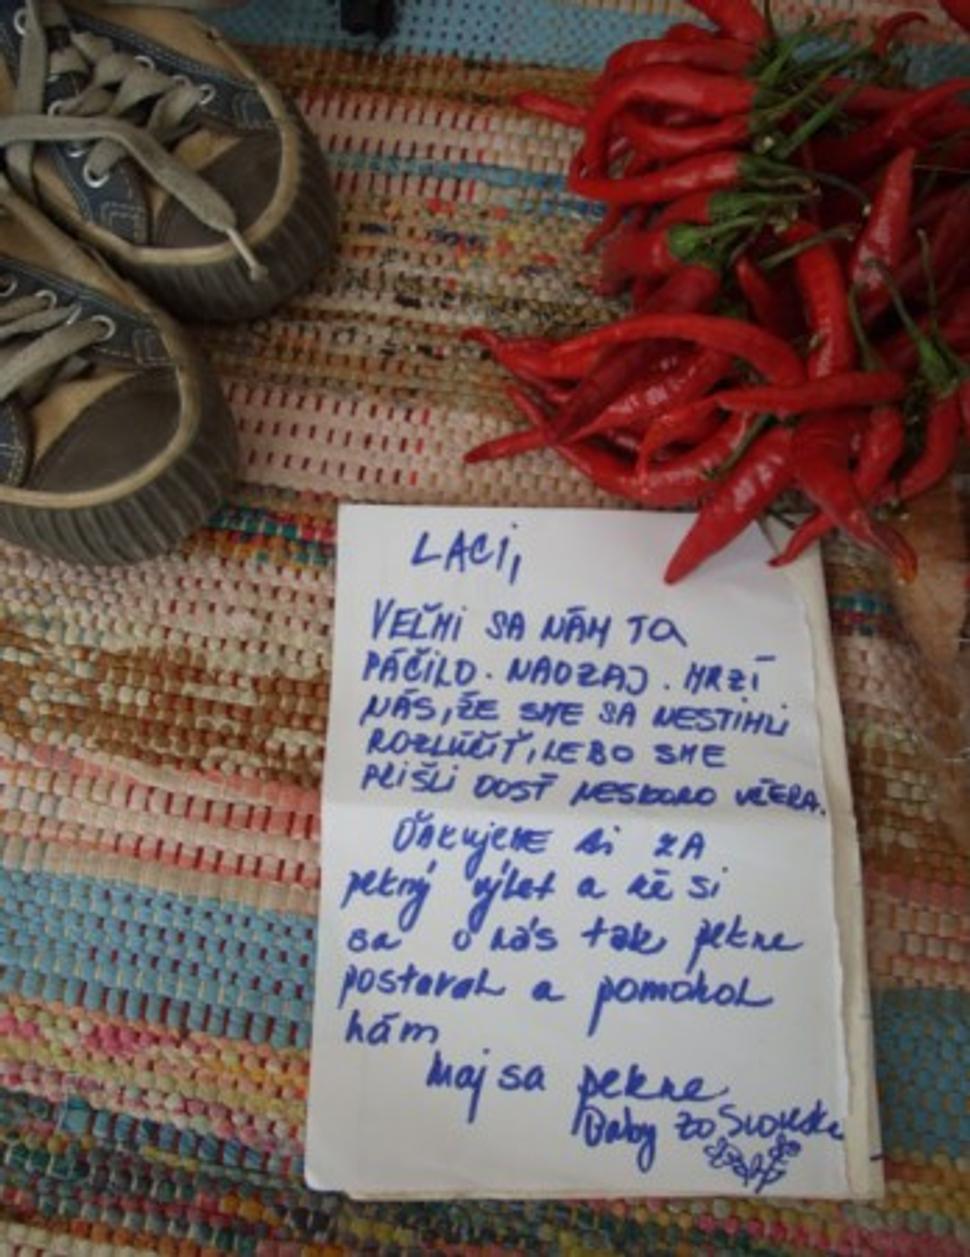 LACI,
VEĽMI SA NÁM TO
PÁČILO. NAOZAJ. MRZÍ
NÁS, ŽE SME SA NESTIHLI
ROZLÚČIŤ, LEBO SME
PRIŠLI DOSŤ NESKORO VČERA.
ĎAKUJEME ti ZA
pekný výlet a že si
sa o nás tak pekne
postaral a pomohol
nám
Maj sa pekne
Baby zo Slovenska